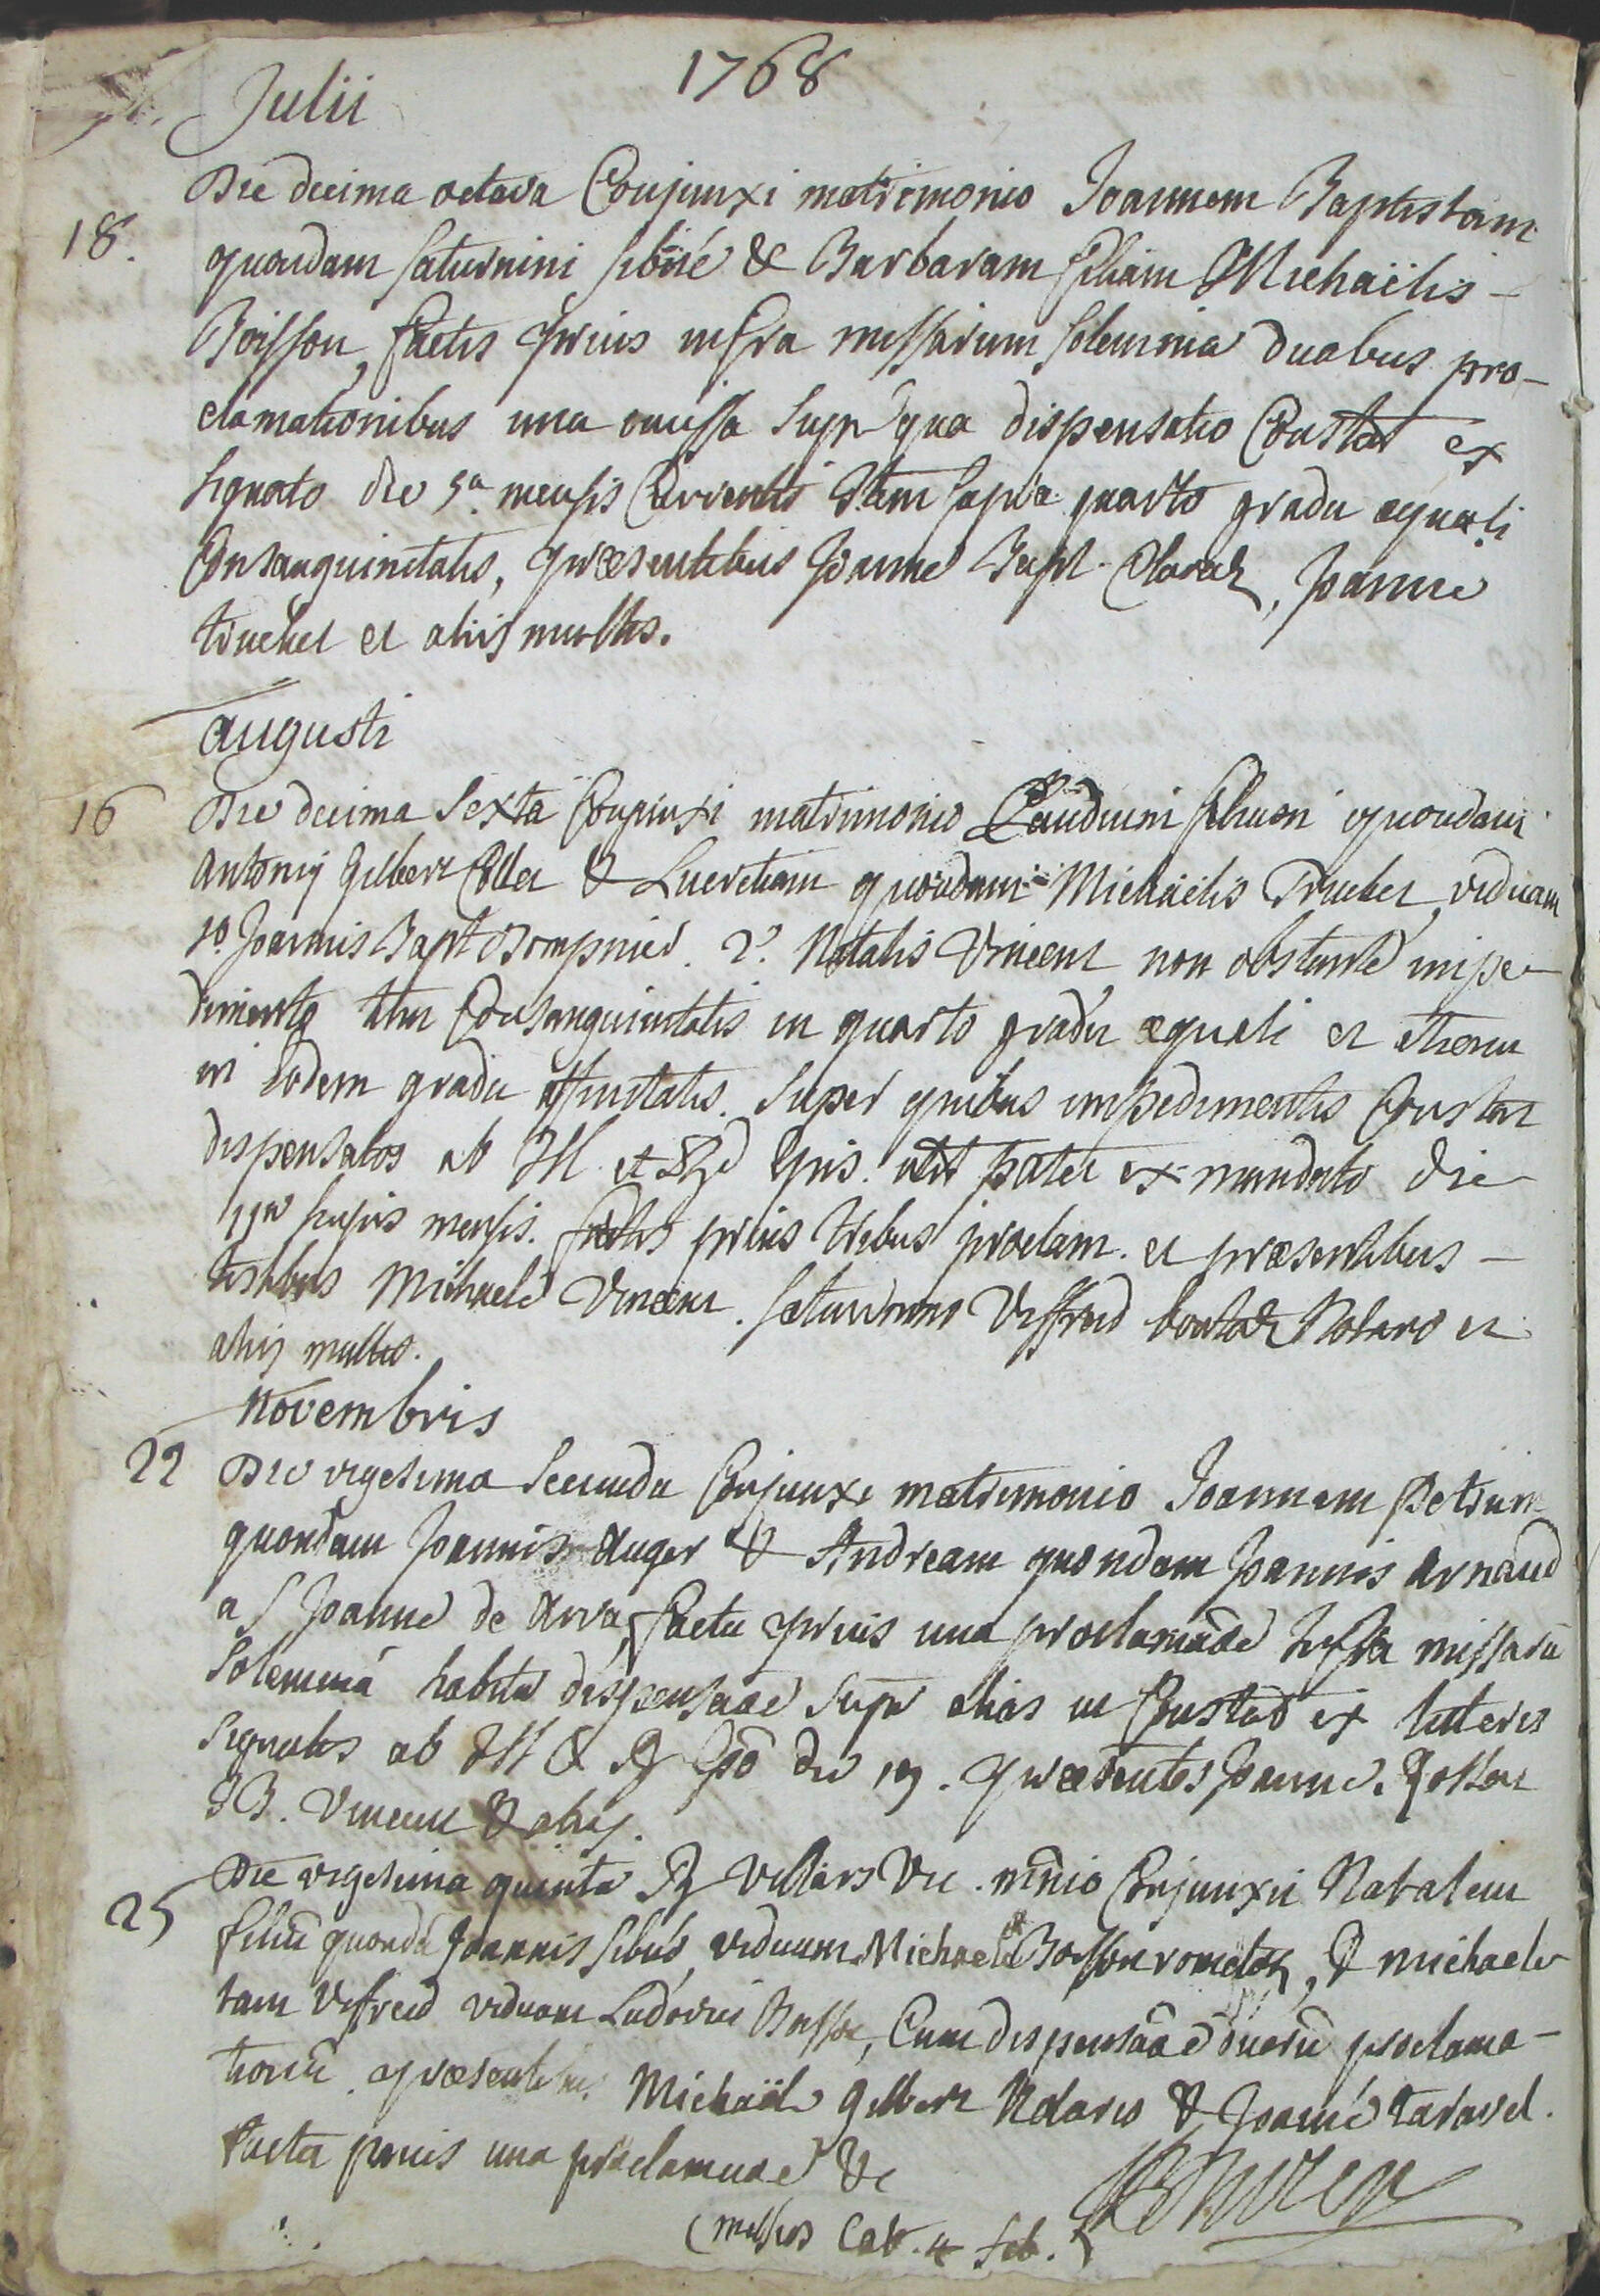 1768
Julii
Die decima octava Conjunxi matrimonio Joannem Baptistam
18.
quondam Saturnini Sibué & Barbaram filiam Michaëlis -
Boisson, factis prius infra missarum solemnia duabus pro-
clamationibus una omissa supr qua dispensatio Constat ex
signato die 5a mensis Currentis Item supra quarto gradu æquali
Consanguinitatis, præsentibus Joanne Bapt. Claraz, Joanne
truchet et aliis multis.
augusti
16
Die decima Sexta Conjunxi matrimonio filium quondam
Antonij Gilbert Collet & Lucretiam quondam Michaëlis Truchet, viduam
1o. Joannis Bapt Bompnier. 2o. Natalis Vincent non obstante impe-
dimento Consanguinitatis in quarto gradu æquali et etiam
in eodem gradu affinitatis. Super quibus impedimentis Constat
dispensatos ab Ill. et Rd Epis. uti patet ex mandato die
11a hujus mensis. factis prius tribus proclam. et præsentibus -
testibus Michaele Vincent. Saturnino Viffred Notario et
aliis multis.
Novembris
22
Die vigesima Secunda Conjunxi matrimonio Joannem Petrum
quondam Joannis Auger & Andream quondam Joannis Arnaud
a S Joanne de Arva, facta prius una proclamaōe infra missarū
Solemnia habita dispensaōe supr alias ut Constat ex litteris
Signatis ab Ill & R Epō die 19. præsentes Joanne
JB. Vincent & aliis.
25
Die vigesima quinta R Villars Vic. mn̄io Conjunxit Natalem
filiū quondā Joannis Sibué, viduum Michaelæ Boisson rometaz, & michaele
tam Vifreid viduam Ludovici Boisson, Cum dispensaōe duarū proclama-
tionū. præsentibus Michaële Gilbert Notario & Joanne taravel.
facta prius una proclamaōe &c
(missos Cab. 4 feb.)